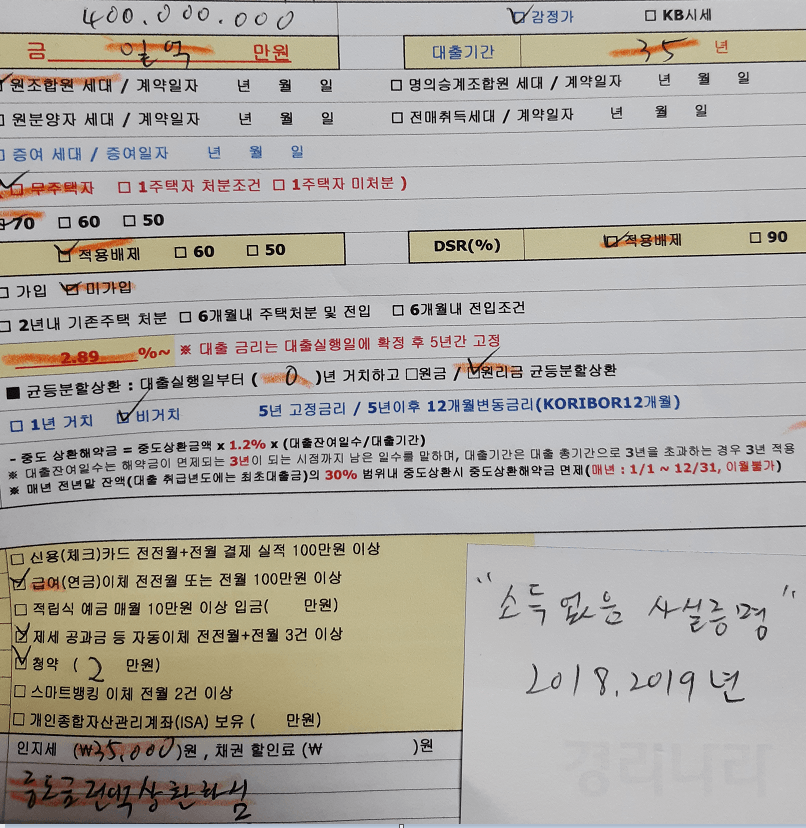 400.000.000 ☑ 감정가 □ KB시세
금 일억 만원 대출기간 35 년
원조합원 세대 / 계약일자 년 월 일 □ 명의승계조합원 세대 / 계약일자 년 월 일
□ 원분양자 세대 / 계약일자 년 월 일 □ 전매취득세대 / 계약일자 년 월 일
□ 증여 세대 / 증여일자 년 월 일
☑ 무주택자 □ 1주택자 처분조건 □ 1주택자 미처분 )
☑ 70 □ 60 □ 50
☑ 적용배제 □ 60 □ 50 DSR(%) ☑ 적용배제 □ 90
□ 가입 ☑ 미가입
□ 2년내 기존주택 처분 □ 6개월내 주택처분 및 전입 □ 6개월내 전입조건
2.89 %~ ※ 대출 금리는 대출실행일에 확정 후 5년간 고정
■ 균등분할상환 : 대출실행일부터 ( 0 )년 거치하고 □원금 / ☑원리금 균등분할상환
□ 1년 거치 ☑ 비거치 5년 고정금리 / 5년이후 12개월변동금리(KORIBOR12개월)
- 중도 상환해약금 = 중도상환금액 x 1.2% x (대출잔여일수/대출기간)
※ 대출잔여일수는 해약금이 면제되는 3년이 되는 시점까지 남은 일수를 말하며, 대출기간은 대출 총기간으로 3년을 초과하는 경우 3년 적용
※ 매년 전년말 잔액(대출 취급년도에는 최초대출금)의 30% 범위내 중도상환시 중도상환해약금 면제(매년 : 1/1 ~ 12/31, 이월불가)
□ 신용(체크)카드 전전월+전월 결제 실적 100만원 이상
☑ 급여(연금)이체 전전월 또는 전월 100만원 이상
□ 적립식 예금 매월 10만원 이상 입금( 만원)
☑ 제세 공과금 등 자동이체 전전월+전월 3건 이상
☑ 청약 ( 2 만원)
□ 스마트뱅킹 이체 전월 2건 이상
□ 개인종합자산관리계좌(ISA) 보유 ( 만원)
인지세 (₩35,000)원 , 채권 할인료 (₩ )원
중도금전액상환하심
"소득없음 사실증명"
2018, 2019년
경리나라